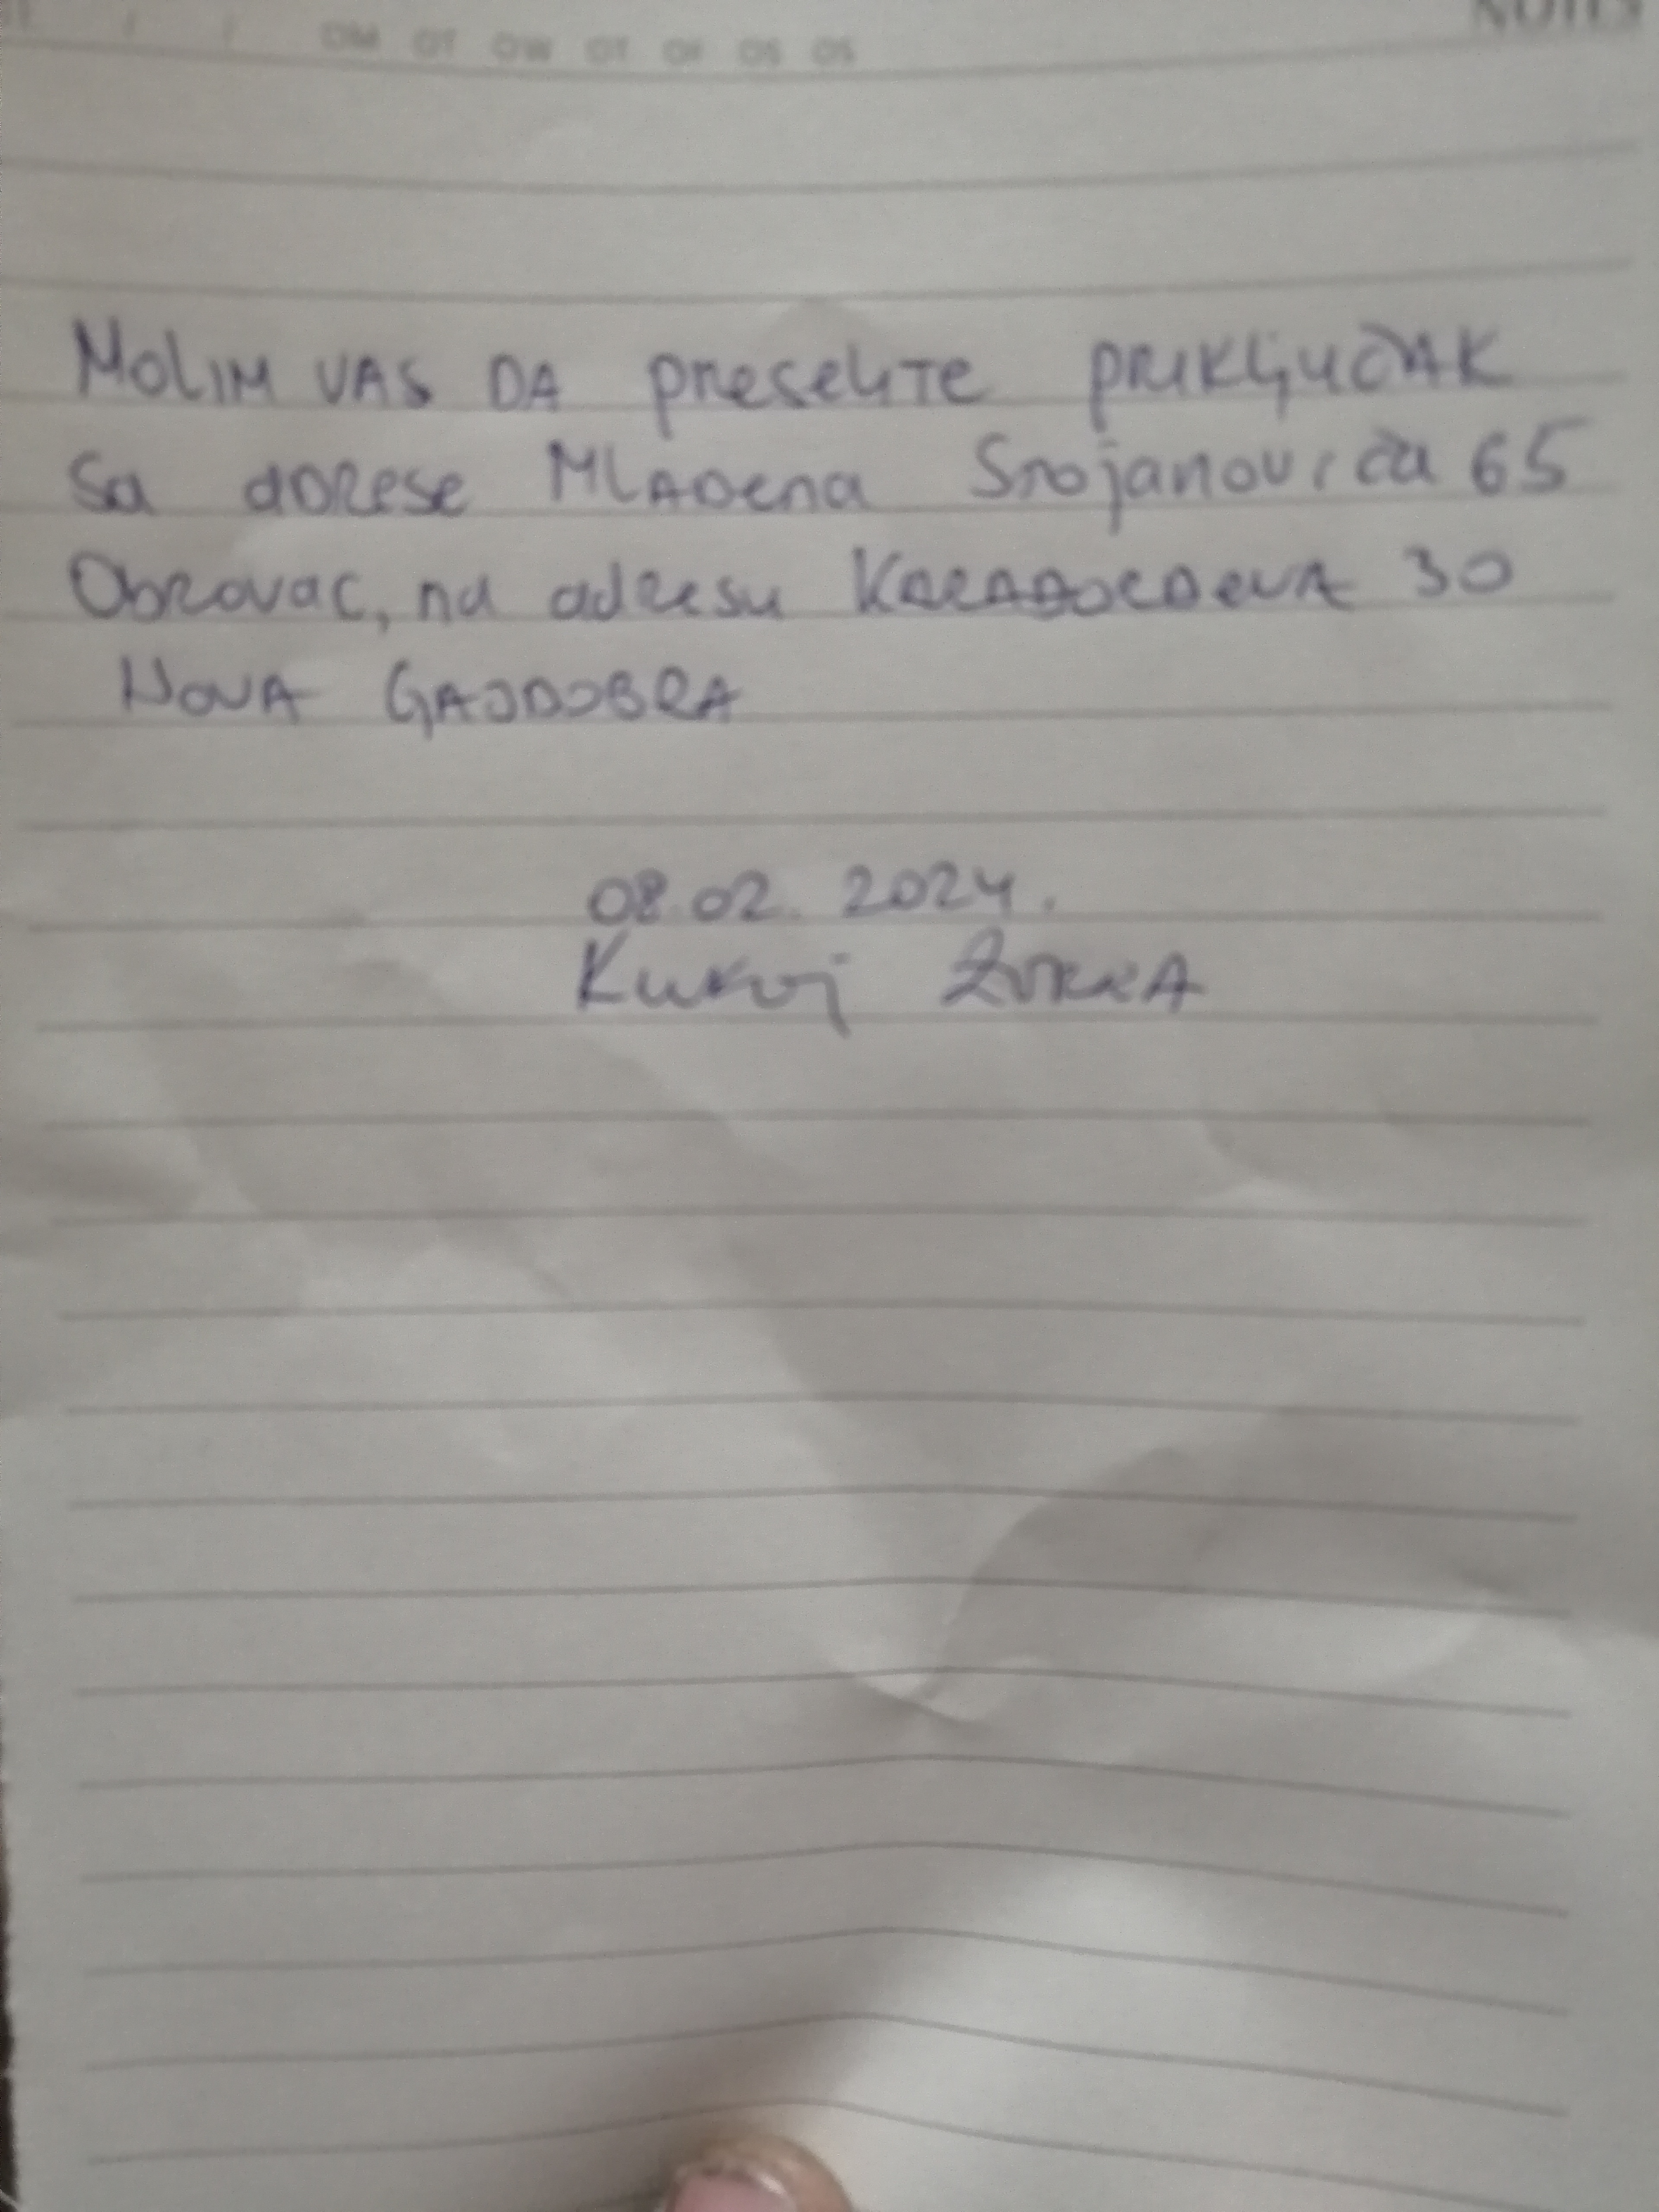 NOTES
MOLIM VAS DA preselite priključak
sa adrese Mladena Stojanovića 65
Obrovac, na adresu KARAĐORĐEVA 30
NOVA GAJDOBRA
08.02. 2024.
Kukoj